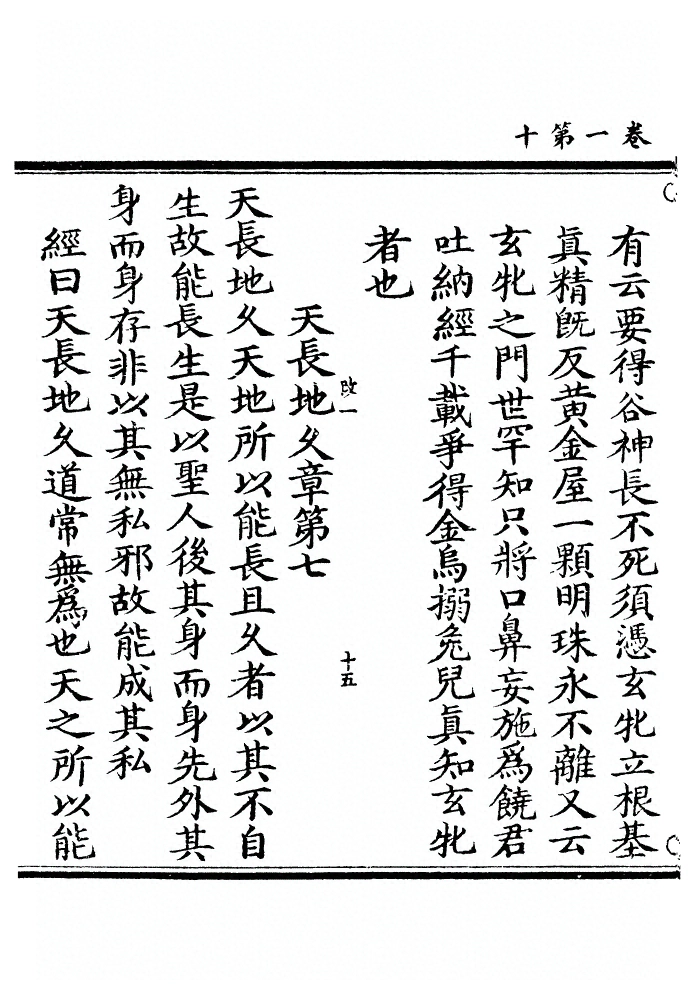 卷一第十
有云要得谷神長不死須慿玄牝立根基
眞精既反黄金屋一顆明珠永不離又云
玄牝之門世罕知只將口鼻妄施爲饒君
吐納經千載爭得金烏搦兔兒眞知玄牝
者也
攺一
十五
天長地久章第七
天長地久天地所以能長且久者以其不自
生故能長生是以聖人後其身而身先外其
身而身存非以其無私邪故能成其私
經曰天長地久道常無爲也天之所以能